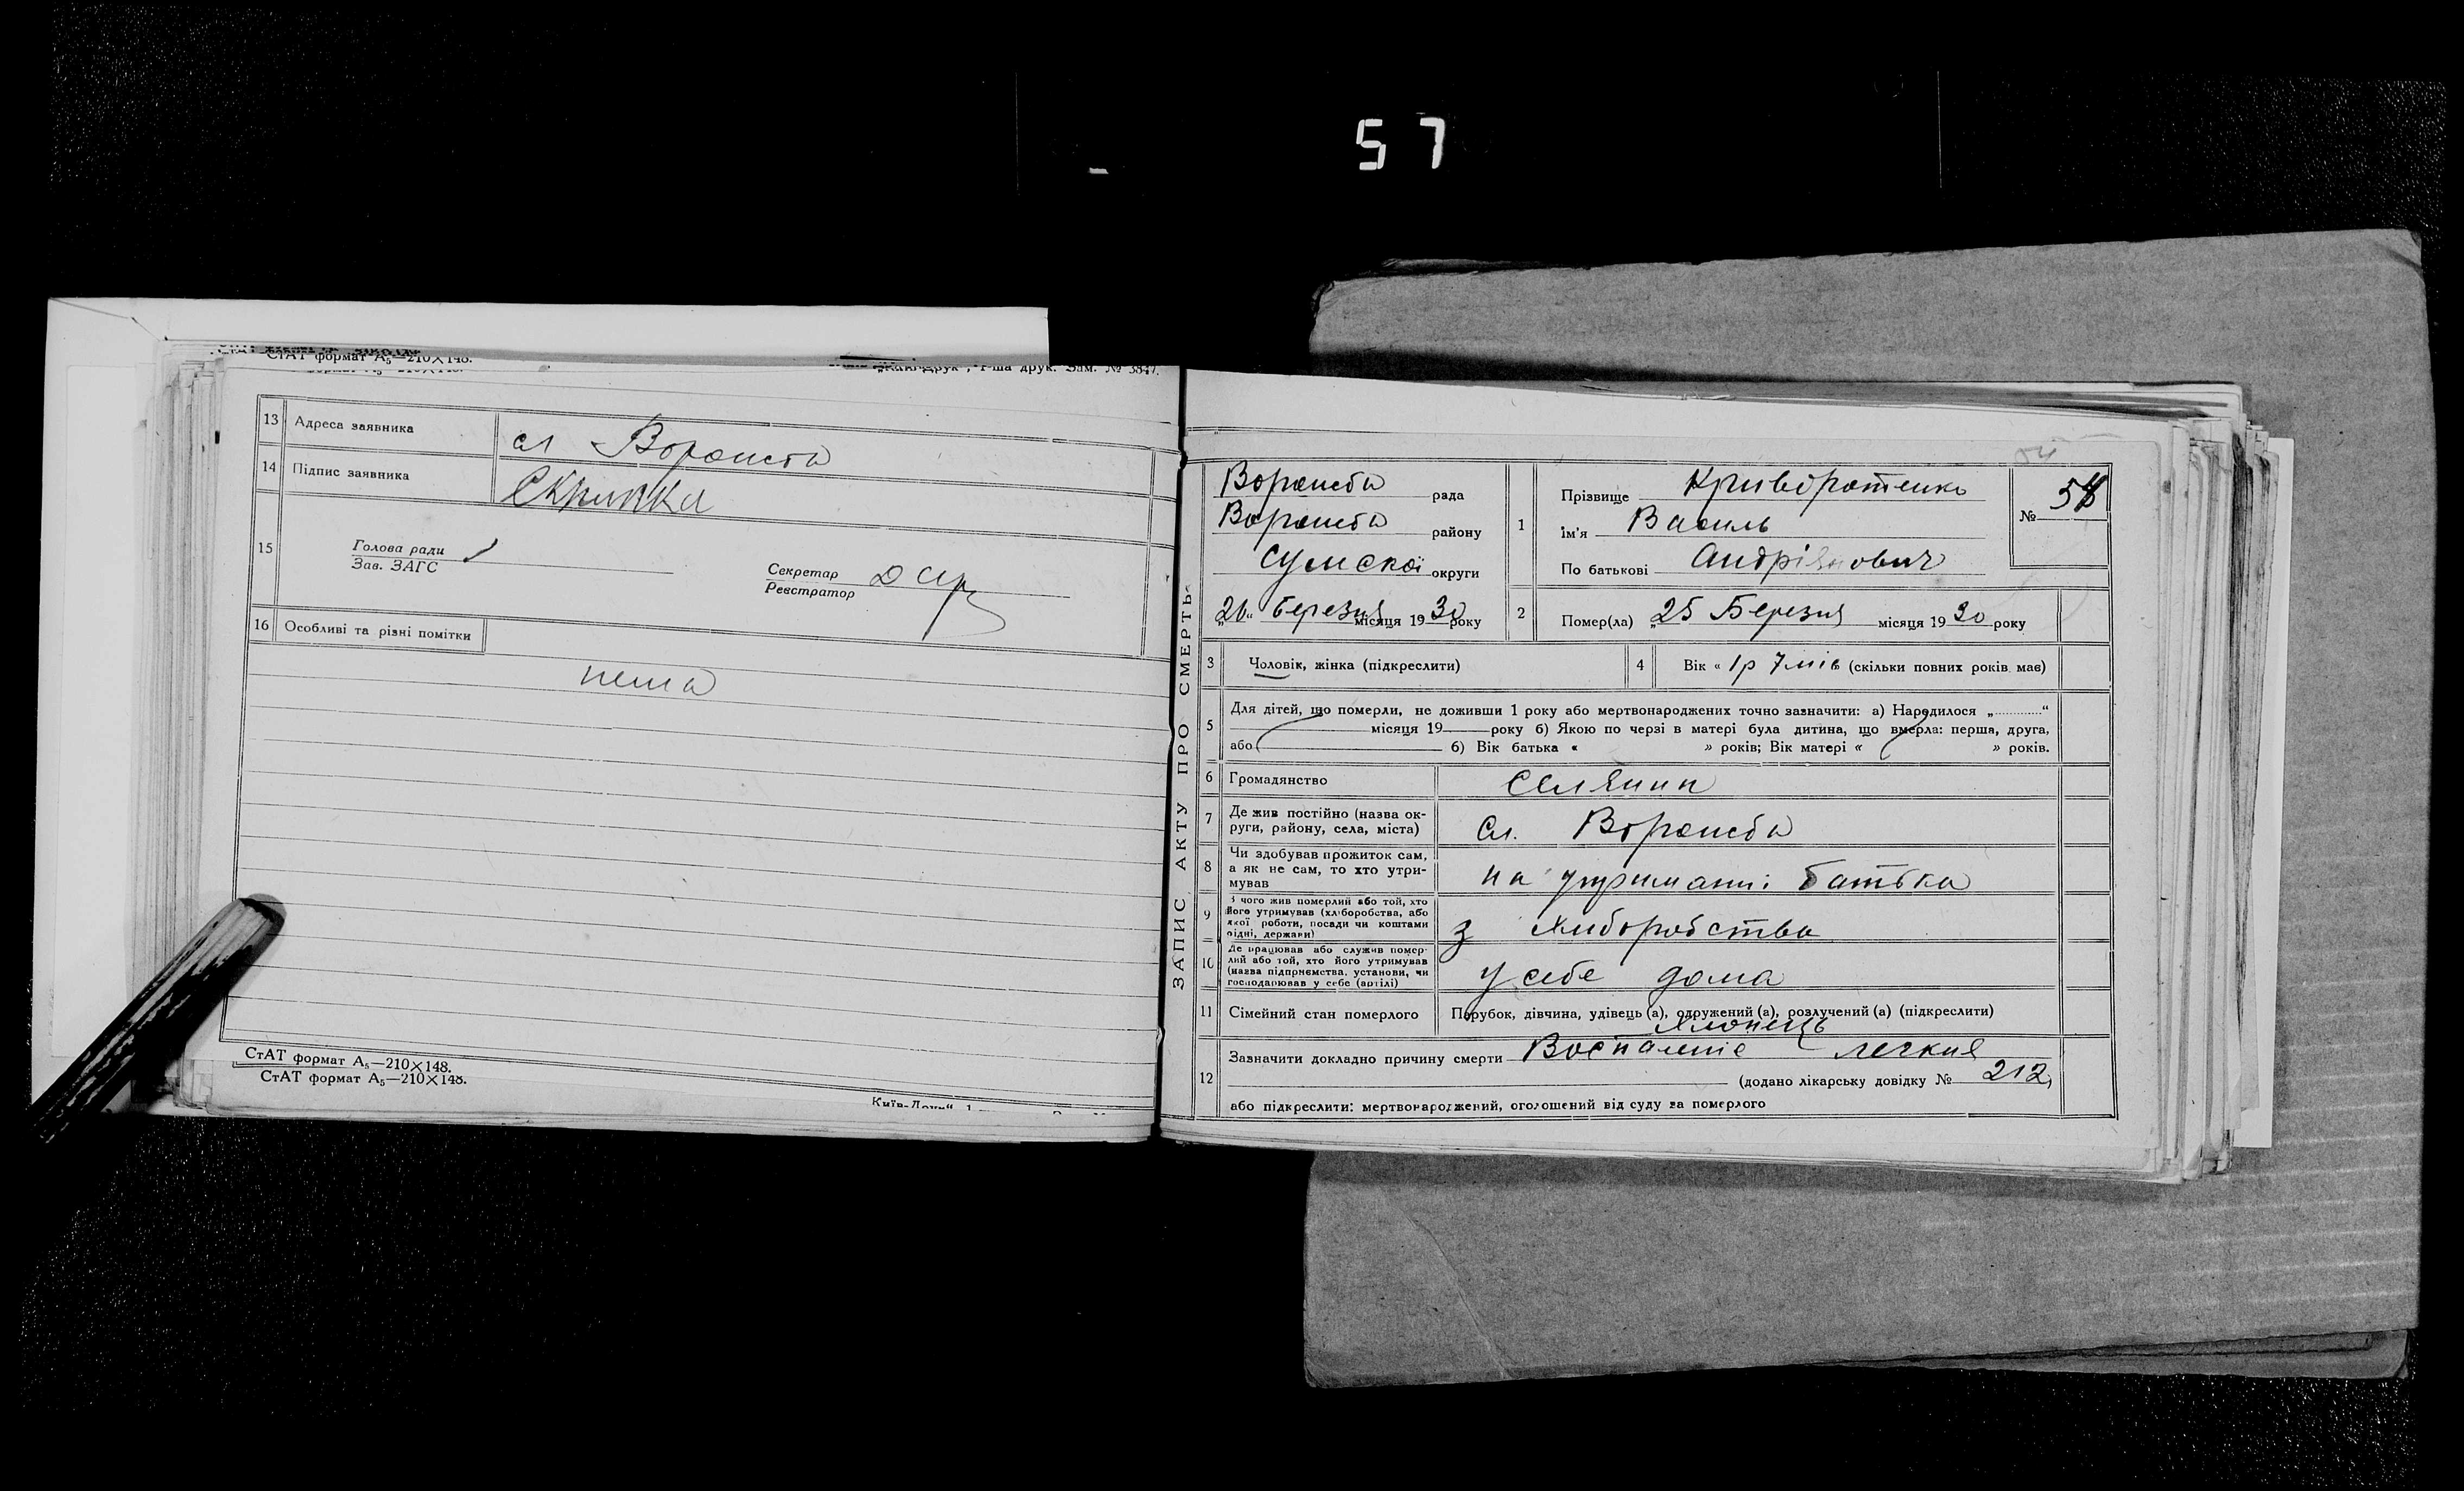 57
СтАТ формат А₅—210×148.
друк. Зам. № 3847.
13 Адреса заявника сл Ворожба
14 Підпис заявника Скрипка
15 Голова ради
Зав. ЗАГС
Секретар
Реєстратор
16 Особливі та різні помітки
нема
СтАТ формат А₅—210×148.
СтАТ формат А₅—210×148.
ЗАПИС АКТУ ПРО СМЕРТЬ
Ворожба рада
Ворожба району
Сумскої округи
„26“ березня місяця 1930 року
1 Прізвище Криворотенко
Ім'я Василь
По батькові Андріянович
№ 58
2 Помер(ла) „25 Березня місяця 1930 року
3 Чоловік, жінка (підкреслити)
4 Вік « 1р 7 міс (скільки повних років має)
5 Для дітей, що померли, не доживши 1 року або мертвонароджених точно зазначити: а) Народилося „............“
місяця 19 року б) Якою по черзі в матері була дитина, що вмерла: перша, друга,
або 6) Вік батька « » років; Вік матері « » років.
6 Громадянство Селянин
7 Де жив постійно (назва ок-
руги, району, села, міста) Сл. Ворожба
8 Чи здобував прожиток сам,
а як не сам, то хто утри-
мував на утриманні батька
9 З чого жив померлий або той, хто
його утримував (хліборобства, або
якої роботи, посади чи коштами
рідні, держави) з хліборобства
10 Де працював або служив помер-
лий або той, хто його утримував
(назва підприємства, установи, чи
господарював у себе (артілі) у себе дома
11 Сімейний стан померлого Парубок, дівчина, удівець (а), одружений (а), розлучений (а) (підкреслити)
хлопець
12 Зазначити докладно причину смерти Воспаленіе легкия
(додано лікарську довідку № 212)
або підкреслити: мертвонароджений, оголошений від суду за померлого